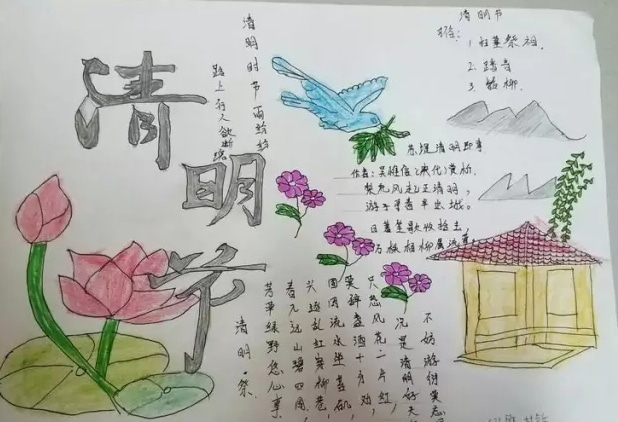 清明节
清明时节雨纷纷
路上行人欲断魂
清明节
1.扫墓祭祖.
2.踏青
3.插柳.
苏堤清明即事
作者:吴惟信
梨花风起正清明,
游子寻春半出城。
日暮笙歌收拾去
万株杨柳属流莺
不妨游衍莫忘
况是清明好天
只恐风花一片红,
笑辞盏酒十分劝,
困因流水坐苔矶,
又逐乱红穿柳巷,
看尽远山碧四围,
芳草绿野恣心事,
清明·祭